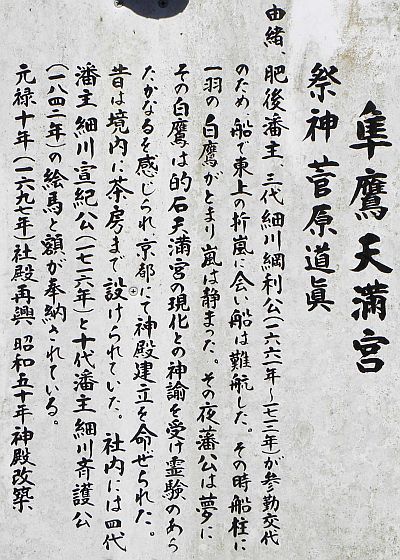 隼鷹天満宮
祭神 菅原道眞
由緒、肥後潘主、三代細川綱利公(一六六一年～一七一二年)が参勤交代
のため船で東上の折嵐に会い船は難航した。その時船柱に
一羽の白鷹がとまり嵐は静まった。その夜藩公は夢に
その白鷹は的石天満宮の現化との神諭を受け霊験のあら
たかなるを感じられ京都にて神殿建立を命ぜられた。
昔は境内に茶房まで設けられていた。社内には四代
潘主細川宣紀公(一七一六年)と十代潘主細川斉護公
(一八四二年)の絵馬と額が奉納されている。
元禄十年(一六九七年)社殿再興 昭和五十年神殿改築